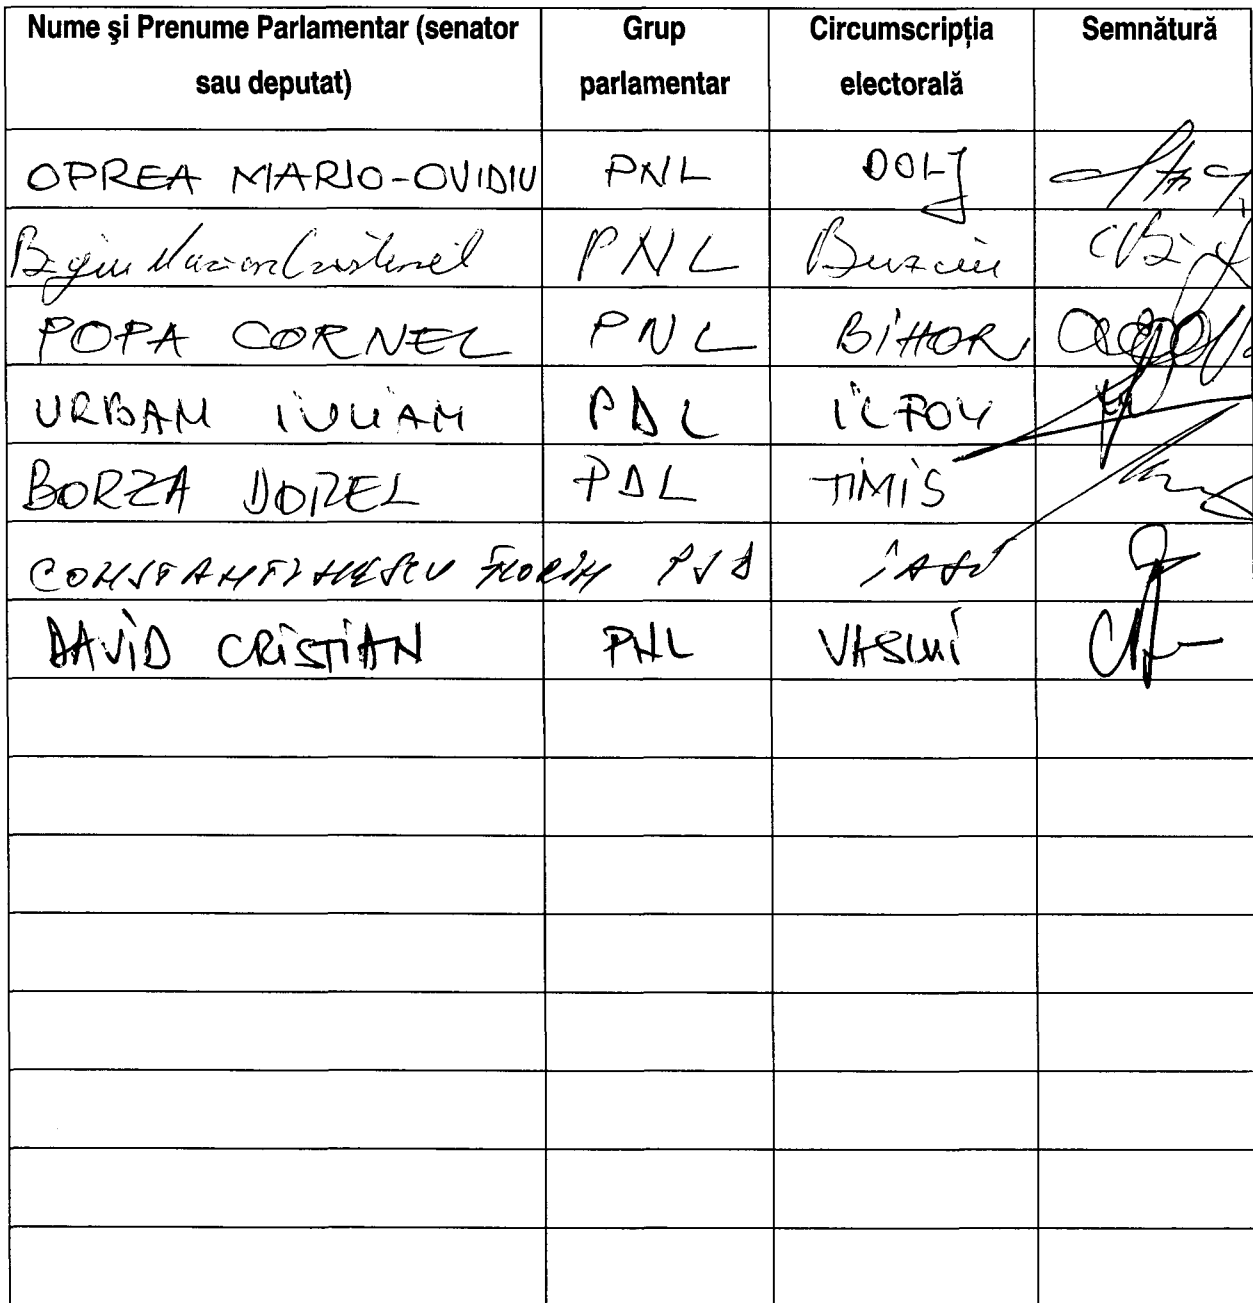 Nume și Prenume Parlamentar (senator sau deputat) Grup parlamentar Circumscripția electorală Semnătură
OPREA MARIO-OVIDIU PNL DOLJ
Marian Cristinel PNL Buzău
POPA CORNEL PNL BIHOR
URBAN IULIAN PDL ILFOV
BORZA DOREL PDL TIMIS
CONSTANTINESCU FLORIN PSD IASI
DAVID CRISTIAN PNL VASLUI